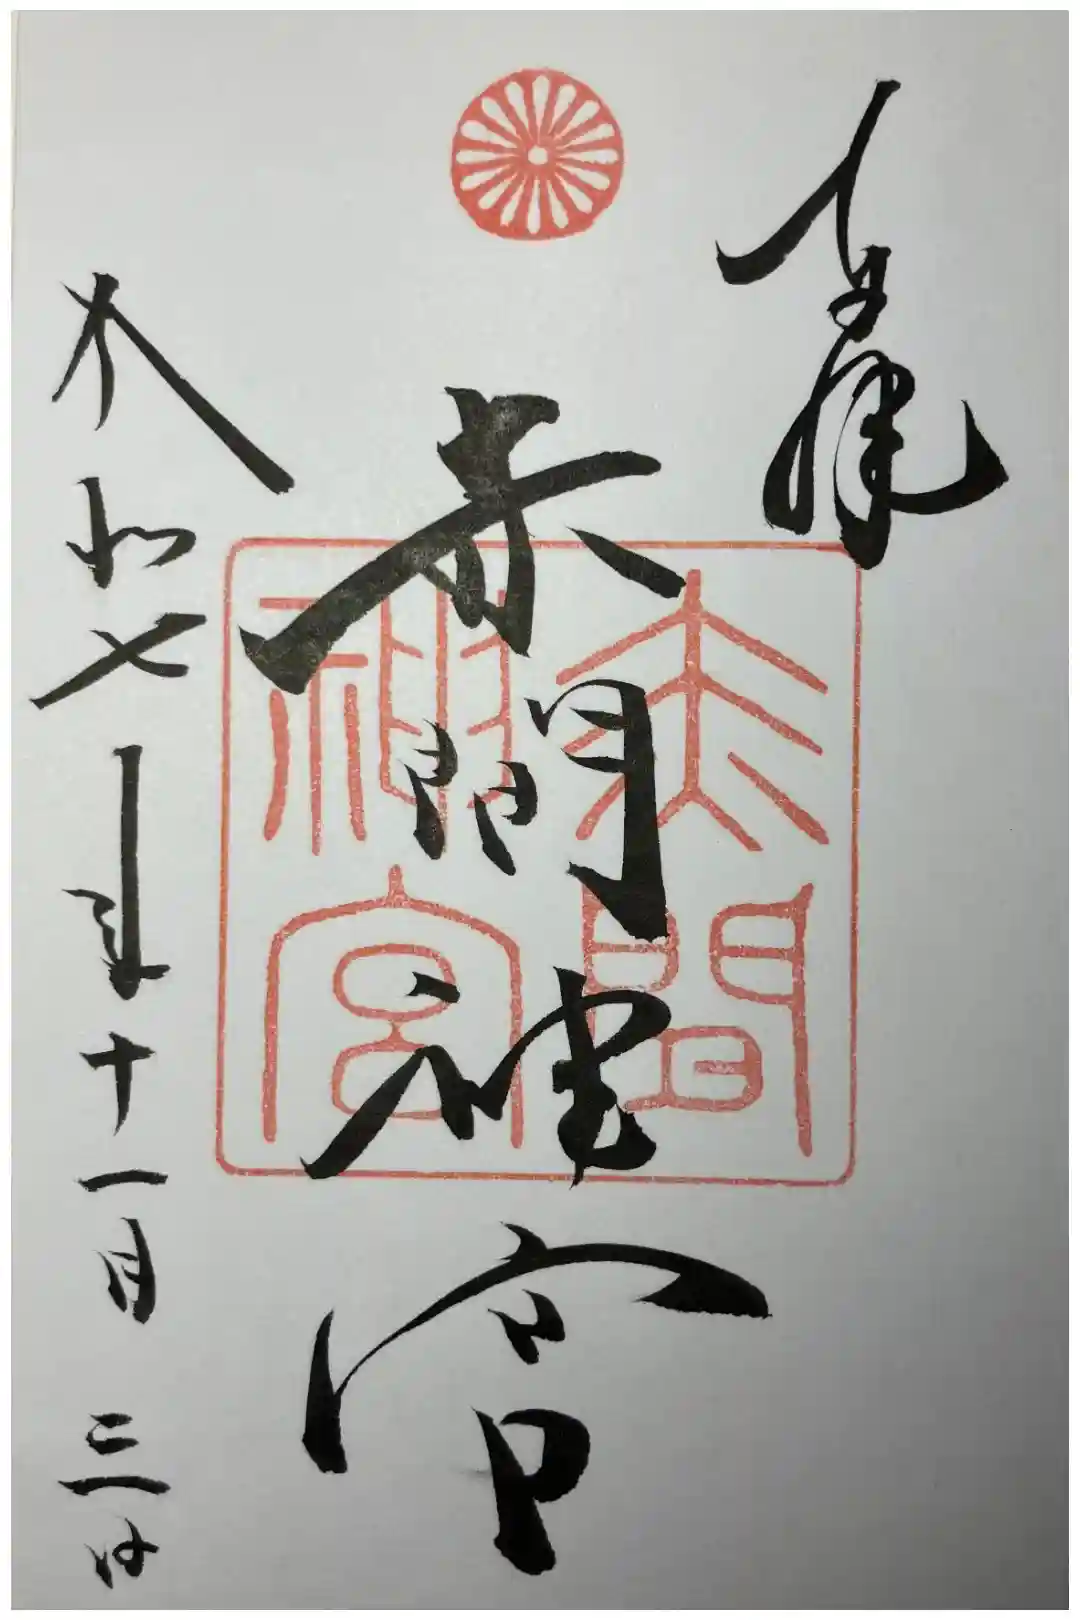 奉拝
赤間神宮
令和七年十一月三日
赤間
神宮